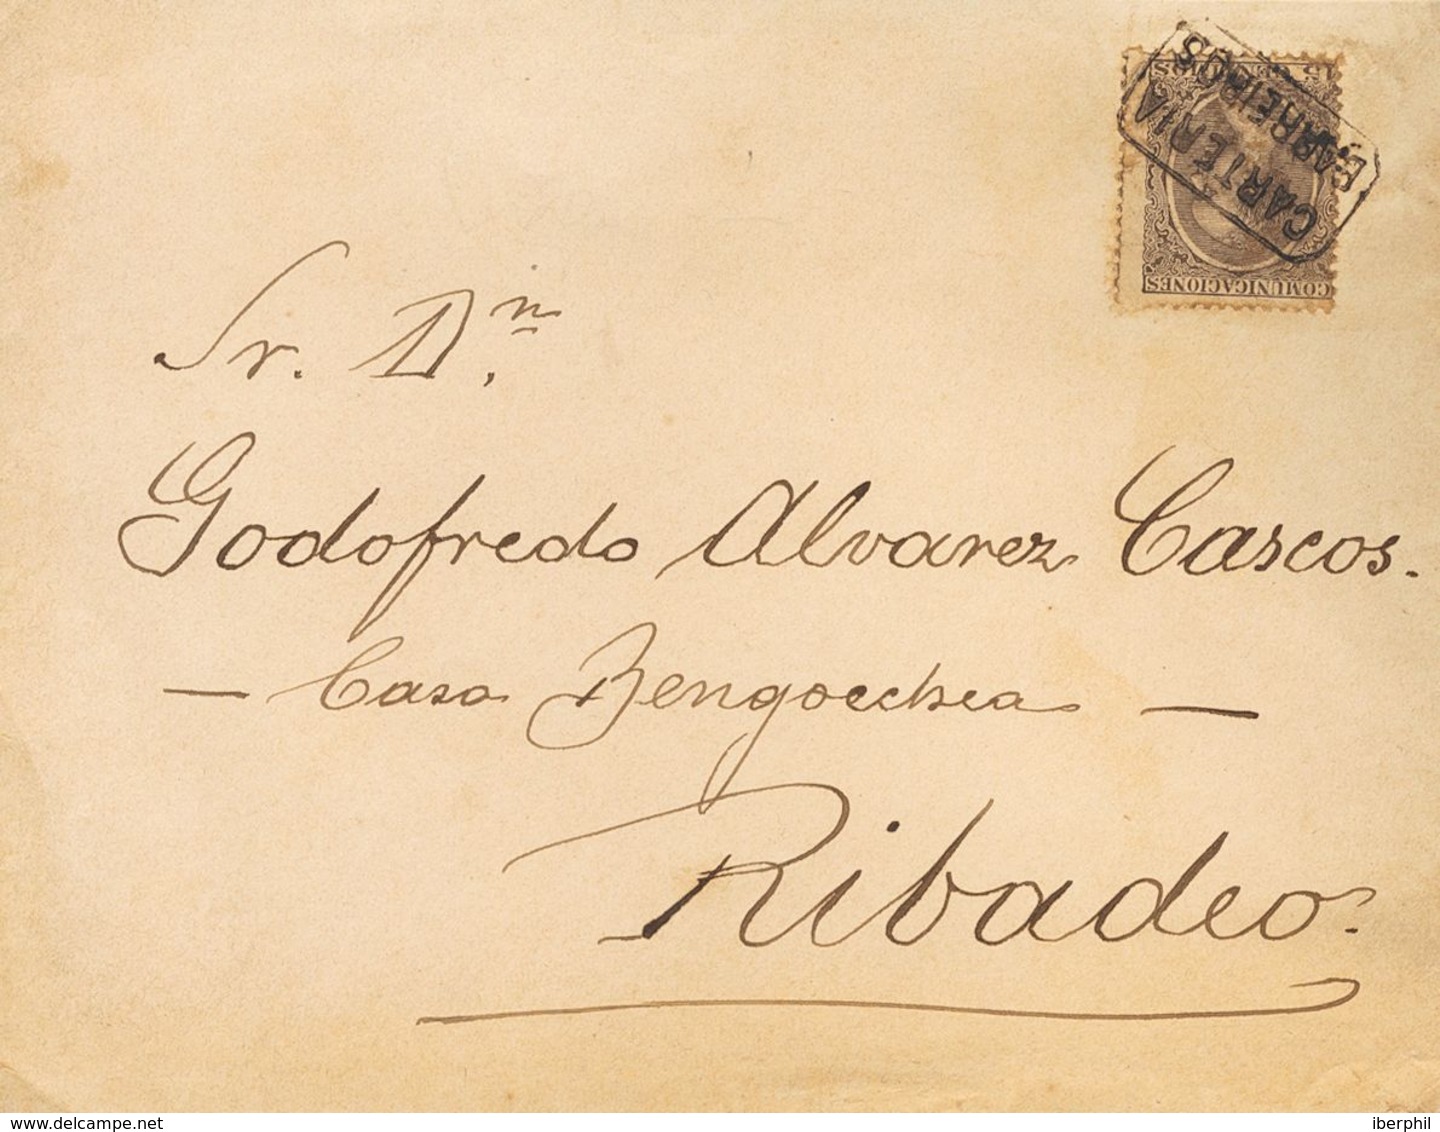 15 CENTIMOS 15
CARTERIA
BARREIROS
COMUNICACIONES
Sr. D.n
Godofredo Alvarez Cascos.
— Casa Bengoechea —
Ribadeo.
delcampe.net
iberphil